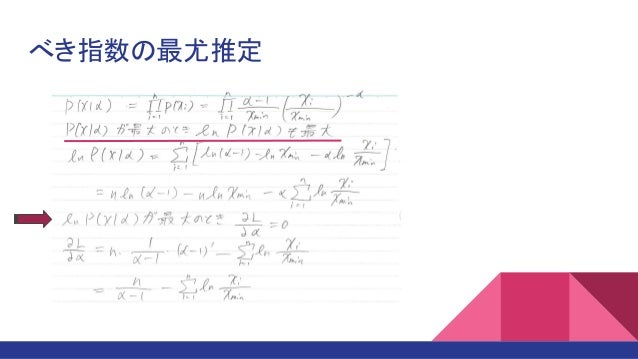 べき指数の最尤推定
P(x|α) = ∏_{i=1}^{n} P(x_i) = ∏_{i=1}^{n} (α-1)/x_min (x_i/x_min)^{-α}
P(x|α)が最大のとき ln P(x|α)も最大
ln P(x|α) = ∑_{i=1}^{n} [ln(α-1) - ln x_min - α ln x_i/x_min]
= n ln(α-1) - n ln x_min - α ∑_{i=1}^{n} ln x_i/x_min
ln P(x|α)が最大のとき ∂L/∂α = 0
∂L/∂α = n・1/(α-1)・(α-1)' - ∑_{i=1}^{n} ln x_i/x_min
= n/(α-1) - ∑_{i=1}^{n} ln x_i/x_min